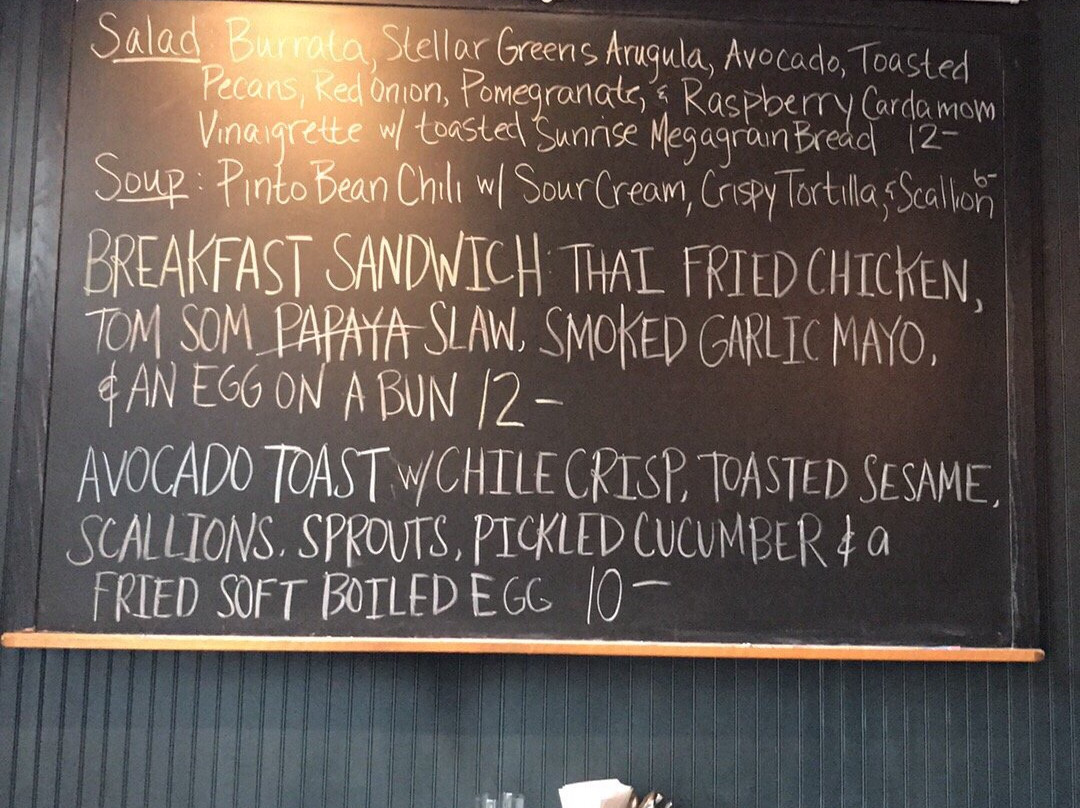 Salad: Burrata, Stellar Greens Arugula, Avocado, Toasted
Pecans, Red Onion, Pomegranate, & Raspberry Cardamom
Vinaigrette w/ toasted Sunrise Megagrain Bread 12-
Soup: Pinto Bean Chili w/ Sour Cream, Crispy Tortilla, & Scallion 6-
BREAKFAST SANDWICH: THAI FRIED CHICKEN,
TOM SOM PAPAYA SLAW, SMOKED GARLIC MAYO,
& AN EGG ON A BUN 12-
AVOCADO TOAST w/ CHILE CRISP, TOASTED SESAME,
SCALLIONS, SPROUTS, PICKLED CUCUMBER & a
FRIED SOFT BOILED EGG 10-